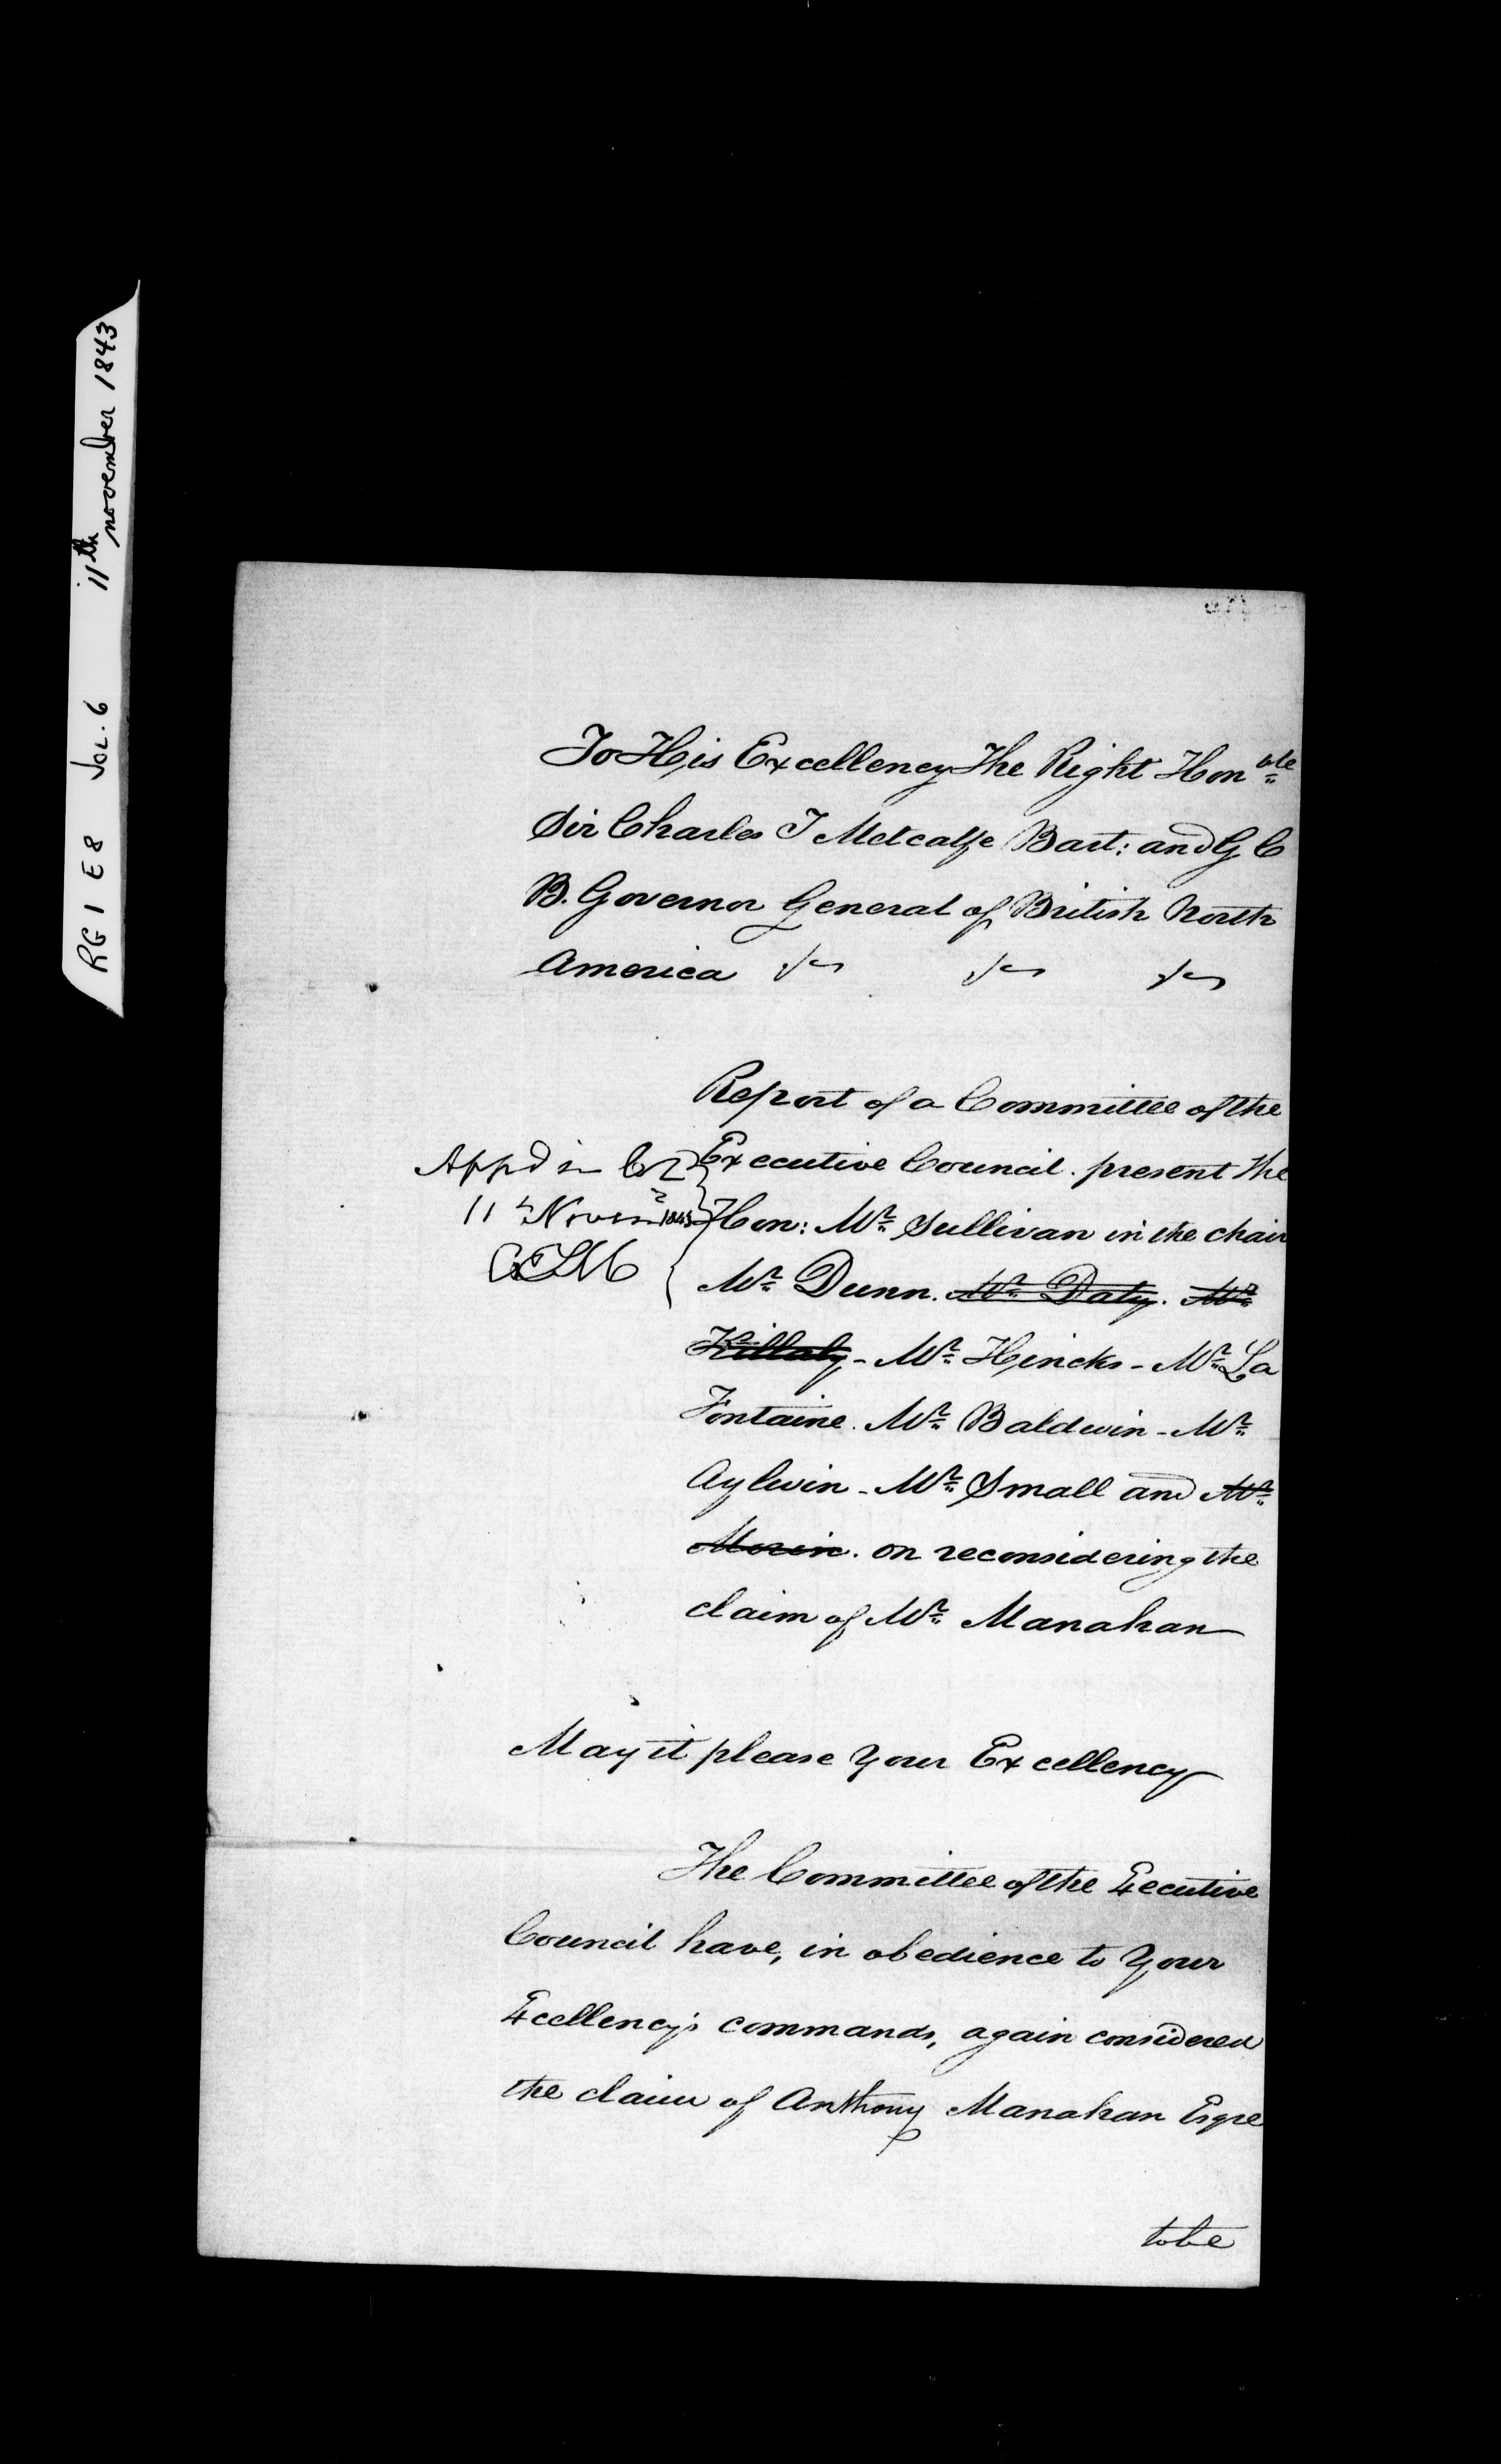 RG 1 E 8 Vol. 6 11th november 1843
To His Excellency The Right Honble
Sir Charles T Metcalfe Bart: and G C
B. Governor General of British North
America &c &c &c
Report of a Committee of the
Executive Council. present the
Hon: Mr Sullivan in the chair
Mr Dunn. Mr Daly. Mr
Killaly - Mr Hincks - Mr La
Fontaine. Mr Baldwin - Mr
Aylwin - Mr Small and Mr
Morin. on reconsidering the
claim of Mr Manahan
App'd in Cl
11th Novemr 1843
CTM
May it please Your Excellency
The Committee of the Executive
Council have, in obedience to Your
Excellency's commands, again considered
the claim of Anthony Manahan Esqre
to be